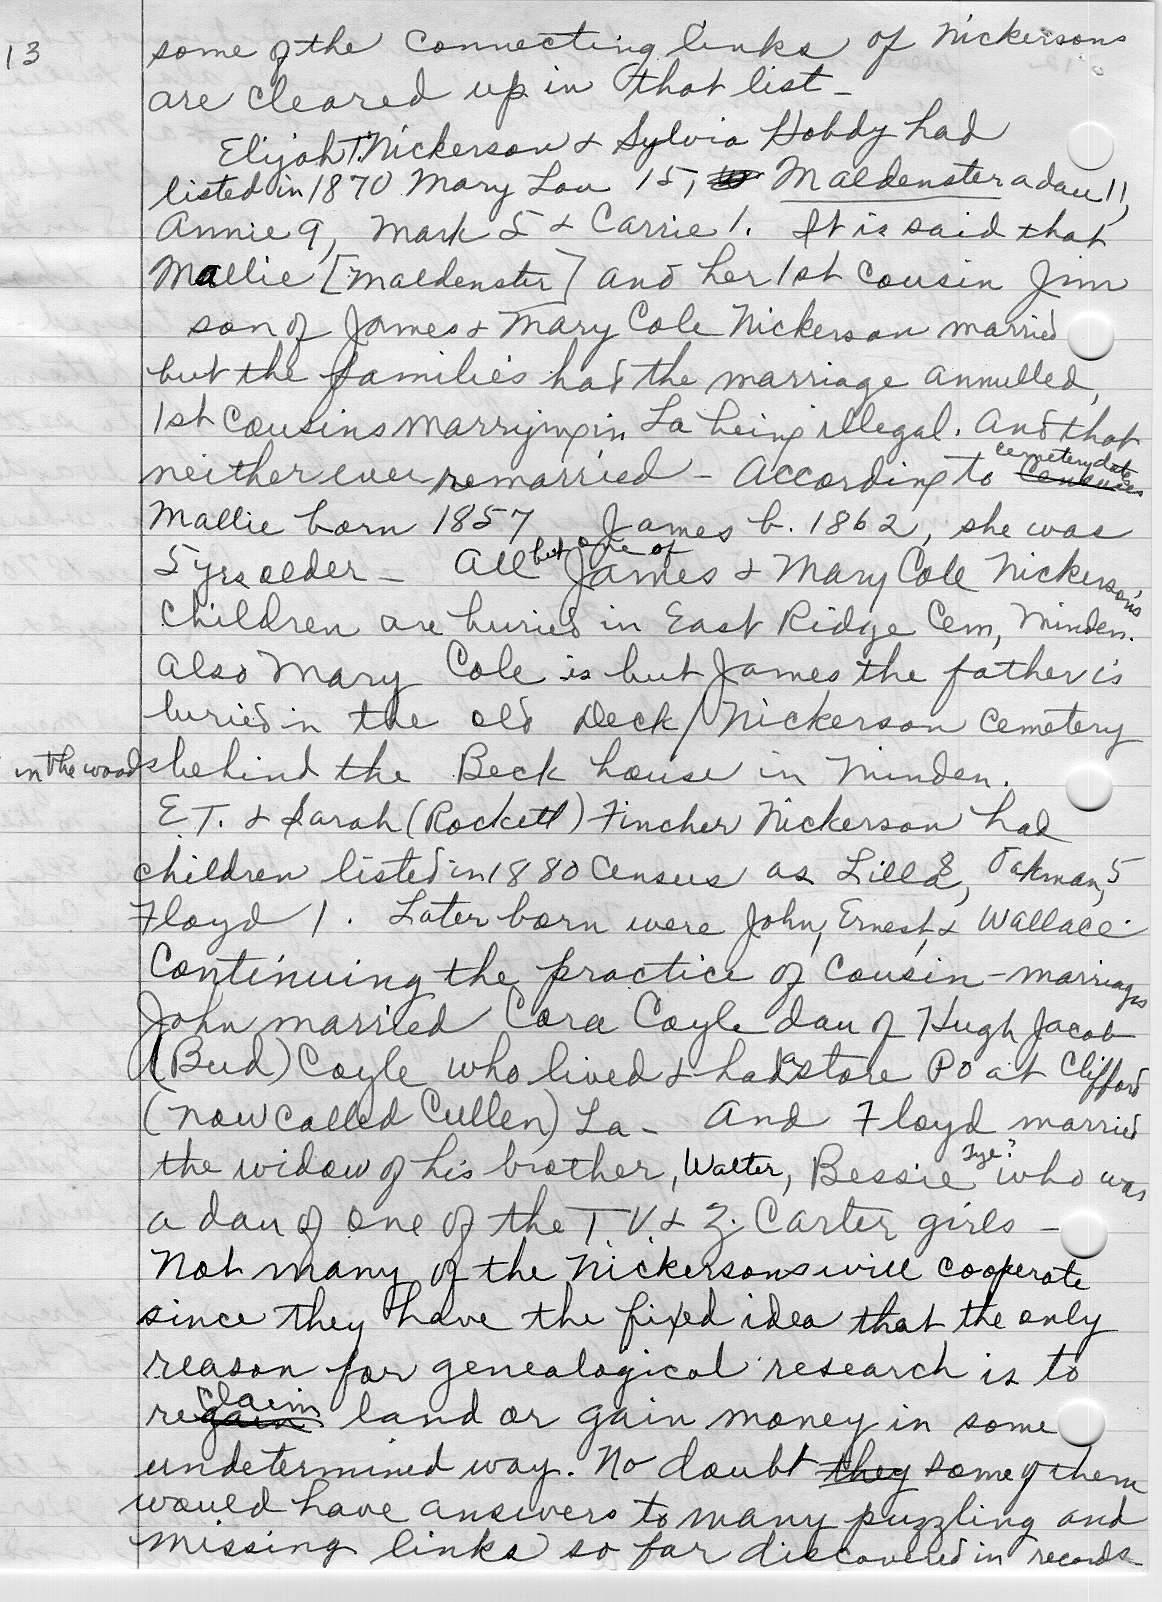 13
some of the connecting links of Nickersons
are cleared up in that list -
Elijah T. Nickerson & Sylvia Hobdy had
listed in 1870 Mary Lou 15, Maldenster a dau 11,
Annie 9, Mark 5 & Carrie 1. It is said that
Mallie [Maldenster] and her 1st cousin Jim
son of James & Mary Cole Nickerson married
but the families had the marriage annulled,
1st cousins marrying in La being illegal. And that
neither ever remarried - According to cemetery dates
Mallie born 1857 James b. 1862, she was
5 yrs older - All but one of James & Mary Cole Nickerson's
children are buried in East Ridge Cem, Minden.
Also Mary Cole is but James the father is
buried in the old Deck/Nickerson cemetery
in the woods behind the Beck house in Minden.
E.T. & Sarah (Rockett) Fincher Nickerson had
children listed in 1880 census as Lilla 8, Oakman, 5
Floyd 1. Later born were John, Ernest, & Wallace.
Continuing the practice of cousin-marriages
John married Cora Coyle dau of Hugh Jacob
(Bud) Coyle who lived & had a store PO at Clifford
(now called Cullen) La - And Floyd married
the widow of his brother, Walter, Bessie Tye? who was
a dau of one of the T.V. & Z. Carter girls -
Not many of the Nickersons will cooperate
since they have the fixed idea that the only
reason for genealogical research is to
reclaim land or gain money in some
undetermined way. No doubt they some of them
would have answers to many puzzling and
missing links so far discovered in records